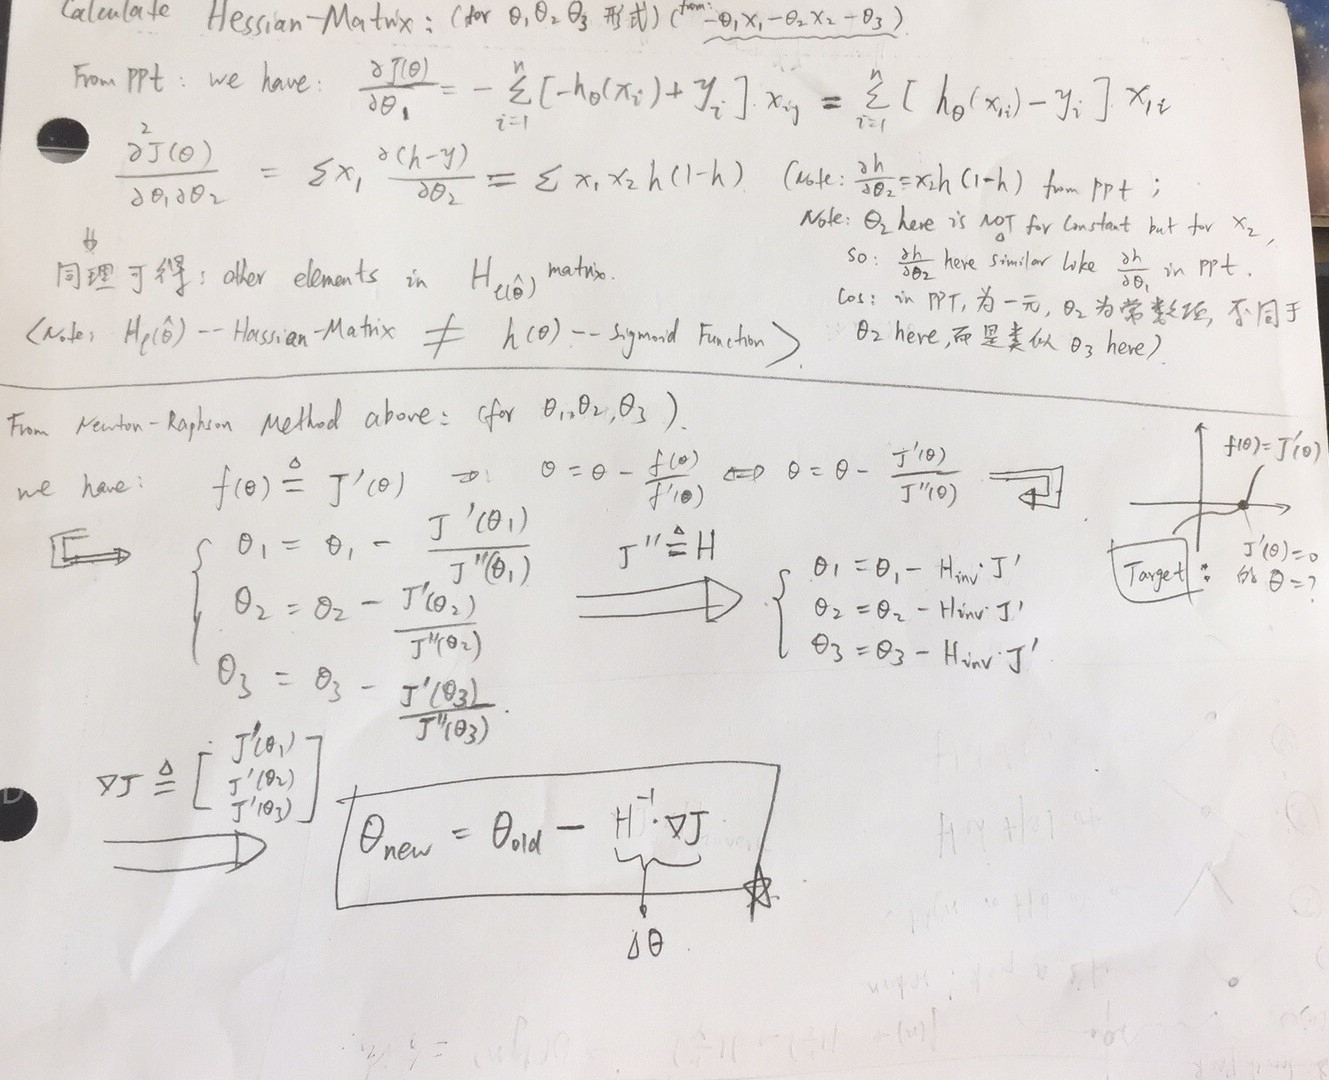 Calculate Hessian-Matrix: (for θ₁θ₂θ₃ 形式) (form: -θ₁x₁-θ₂x₂-θ₃)
From PPt: we have: ∂J(θ)/∂θ₁ = - Σᵢ₌₁ⁿ [-hθ(xᵢ)+yᵢ]·xᵢⱼ = Σᵢ₌₁ⁿ [hθ(x₁ᵢ)-yᵢ]·x₁ᵢ
∂²J(θ)/∂θ₁∂θ₂ = Σx₁ ∂(h-y)/∂θ₂ = Σ x₁x₂h(1-h) (Note: ∂h/∂θ₂=x₂h(1-h) from ppt ;
Note: θ₂ here is NOT for Constant but for x₂,
so: ∂h/∂θ₂ here similar like ∂h/∂θ₁ in ppt.
Cos: in PPT, 为一元, θ₂为常数项, 不同于
θ₂ here, 而是类似 θ₃ here)
同理可得: other elements in H_ℓ(θ̂) matrix.
(Note: H_ℓ(θ̂) -- Hassian-Matrix ≠ h(θ) -- Sigmoid Function)
From Newton-Raphson Method above: (for θ₁,θ₂,θ₃).
we have: f(θ) ≜ J'(θ) ⇒: θ = θ - f(θ)/f'(θ) ⇔ θ = θ - J'(θ)/J''(θ)
f(θ)=J'(θ)
Target :
J'(θ)=0
的 θ=?
θ₁ = θ₁ - J'(θ₁)/J''(θ₁)
θ₂ = θ₂ - J'(θ₂)/J''(θ₂)
θ₃ = θ₃ - J'(θ₃)/J''(θ₃).
J'' ≜ H
θ₁ = θ₁ - Hinv·J'
θ₂ = θ₂ - Hinv·J'
θ₃ = θ₃ - Hinv·J'
∇J ≜ [J'(θ₁) J'(θ₂) J'(θ₃)]
θnew = θold - H⁻¹·∇J
Δθ